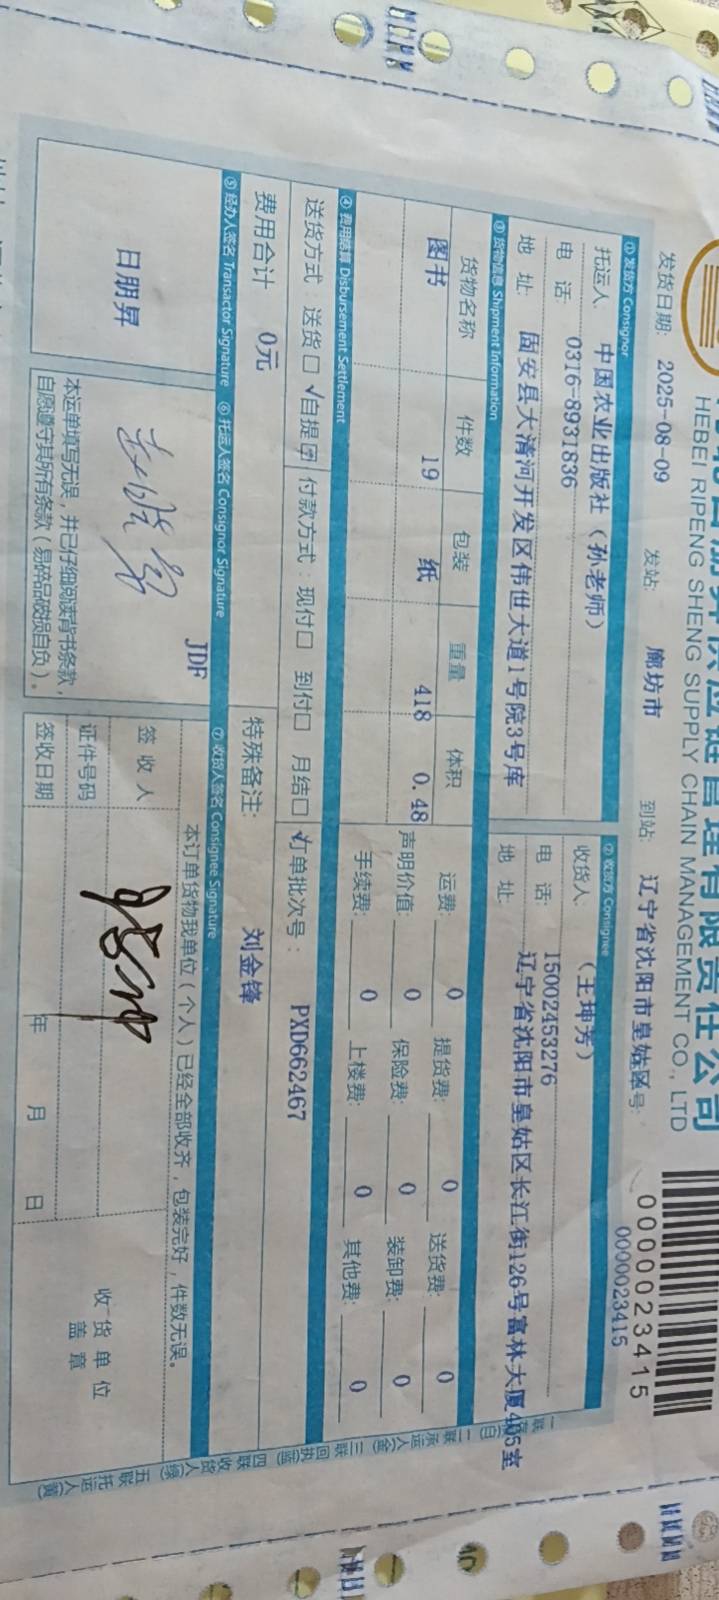 HEBEI RIPENG SHENG SUPPLY CHAIN MANAGEMENT CO., LTD
0000023415
0000023415
发货日期: 2025-08-09 发站: 廊坊市 到站: 辽宁省沈阳市皇姑区 号:
① 发货方 Consignor ② 收货方 Consignee
托运人 中国农业出版社(孙老师) 收货人: (王坤芳)
电 话: 0316-8931836 电 话: 15002453276
地 址: 固安县大清河开发区伟世大道1号院3号库 地 址: 辽宁省沈阳市皇姑区长江街126号富林大厦405室
③ 货物信息 Shipment Information
货物名称 件数 包装 重量 体积 运费: 0 提货费: 0 送货费: 0
图书 19 纸 418 0.48 声明价值: 0 保险费: 0 装卸费: 0
手续费: 0 上楼费: 0 其他费: 0
④ 费用结算 Disbursement Settlement
送货方式: 送货□ √自提□ 付款方式: 现付□ 到付□ 月结□ √订单批次号: PXD662467
费用合计 0元 特殊备注: 刘金锋
⑤ 经办人签名 Transactor Signature ⑥ 托运人签名 Consignor Signature ⑦ 收货人签名 Consignee Signature
JDF
日朋昇
本订单货物我单位(个人)已经全部收齐,包装完好,件数无误。
签收人
证件号码
签收日期 年 月 日
收货单位
盖章
本运单填写无误,并已仔细阅读背书条款,
自愿遵守其所有条款(易碎品破损自负)。